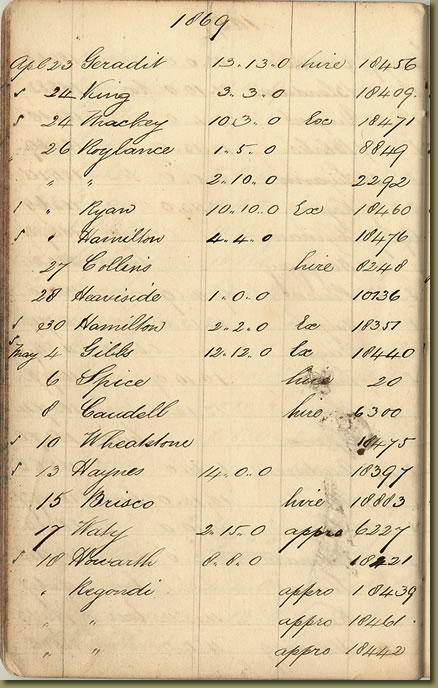 1869
Apl 23 Geradit 13.13.0 hire 18456
s 24 King 3.3.0 18409.
s 24 Mackey 10.3.0 Ex 18471
" 26 Roylance 1.5.0 8849
" 2.10.0 2292
s " Ryan 10.10.0 Ex 18460
s " Hamilton 4.4.0 18476
27 Collins hire 8248
28 Heaviside 1.0.0 10136
s 30 Hamilton 2.2.0 Ex 18351
s May 4 Gibbs 12.12.0 Ex 18440
6 Spice hire 20
8 Caudell hire 6300
s 10 Wheatstone 18475
s 13 Haynes 14.0.0 18397
15 Brisco hire 18883
17 2.15.0 appro 6227
s 18 Howarth 8.8.0 18421
" Regondi appro 18439
" " appro 18461.
" " appro 18442